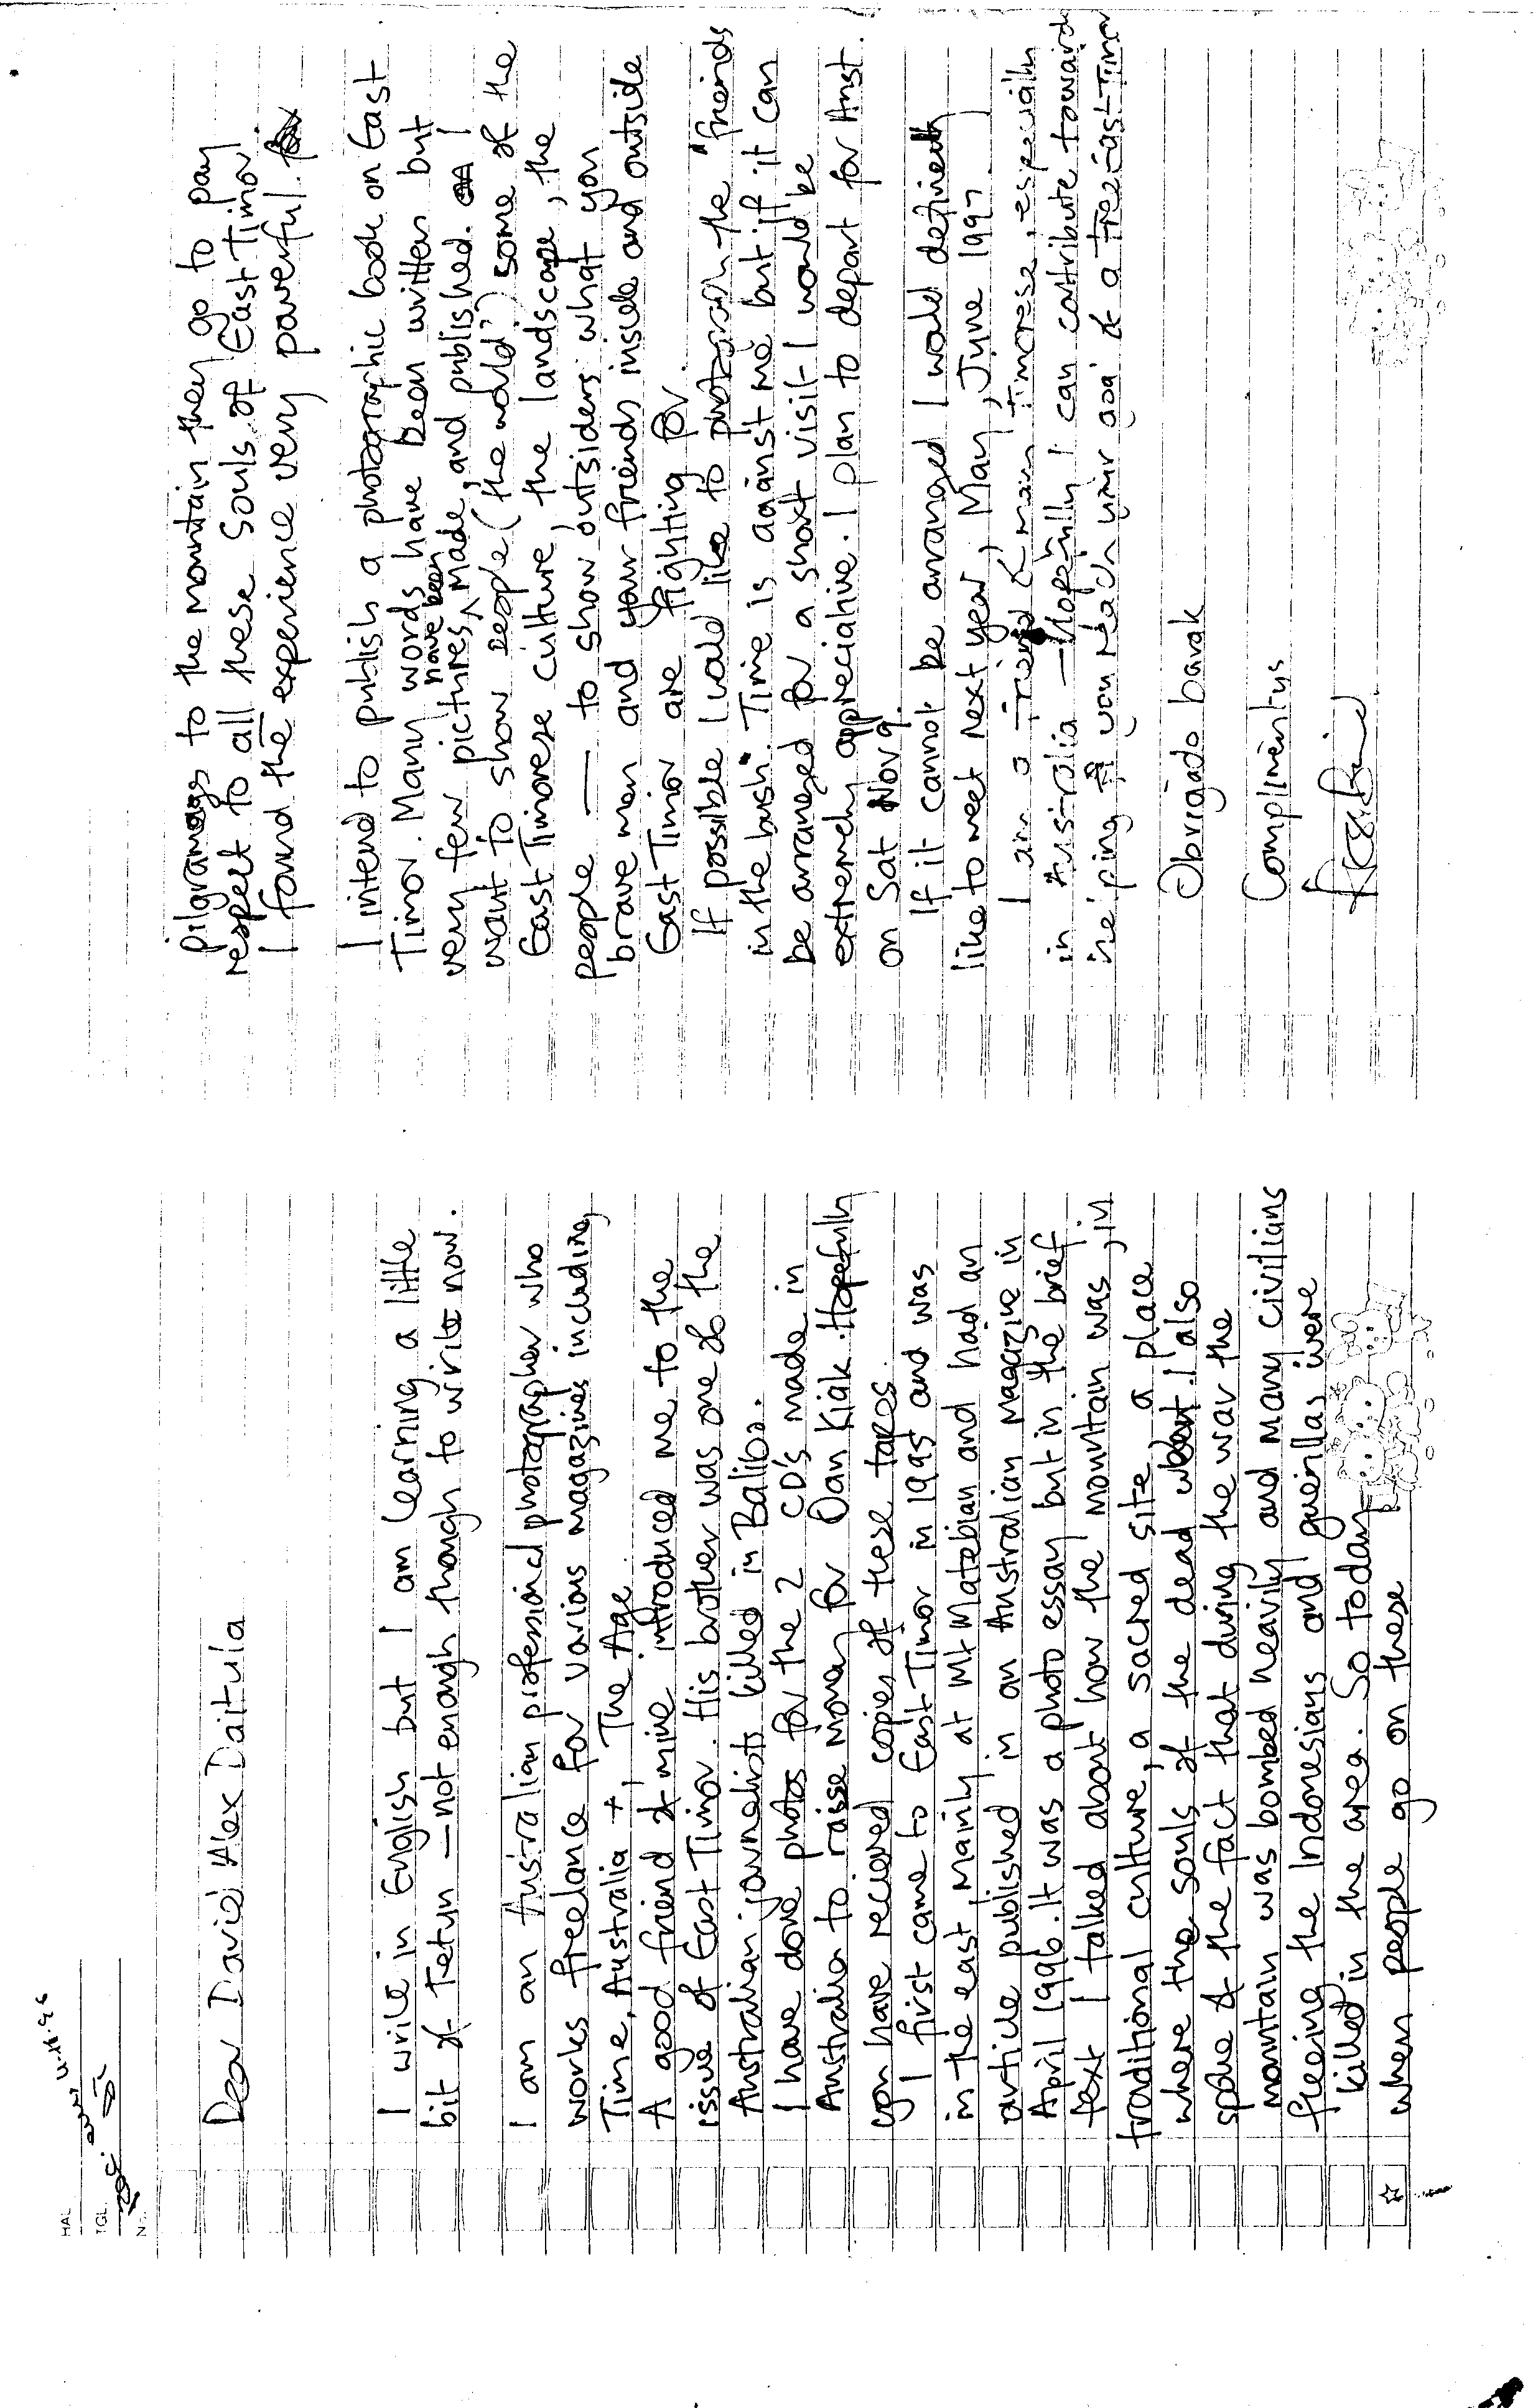 HAL
TGL
No.
Dear David Alex Daitula
I write in English but I am learning a little
bit of Tetun — not enough though to write now.
I am an Australian professional photographer who
works freelance for various magazines including,
Time, Australia +, The Age.
A good friend of mine introduced me to the
issue of East Timor. His brother was one of the
Australian journalists killed in Balibo.
I have done photos for the 2 CD's made in
Australia to raise money for Dan Kiak. Hopefully
you have recieved copies of these tapes.
I first came to East Timor in 1995 and was
in the east, mainly at Mt Matebian and had an
article published in an Australian magazine in
April 1996. It was a photo essay but in the brief
text I talked about how the mountain was, in
traditional culture, a sacred site, a place
where the souls of the dead went. I also
spoke of the fact that during the war the
mountain was bombed heavily and many civilians
fleeing the Indonesians and guerillas were
killed in the area. So today
when people go on these
pilgramags to the mountain they go to pay
respect to all these souls of East Timor.
I found the experience very powerful.
I intend to publish a photographic book on East
Timor. Many words have been written but
very few pictures have been made, and published. I
want to show people (the world) some of the
East Timorese culture, the landscape, the
people — to show outsiders what you
brave men and your friends inside and outside
East Timor are fighting for.
If possible I would like to photograph the "friends
in the bush". Time is against me but if it can
be arranged for a short visit I would be
extremely appreciative. I plan to depart for Aust.
on Sat Nov 9.
If it cannot be arranged I would definetly
like to meet next year, May, June 1997.
I am a friend of many Timorese, especially
in Australia — Hopefully I can contribute towards
helping you reach your goal of a free East Timor
Obrigado barak
Complimentus